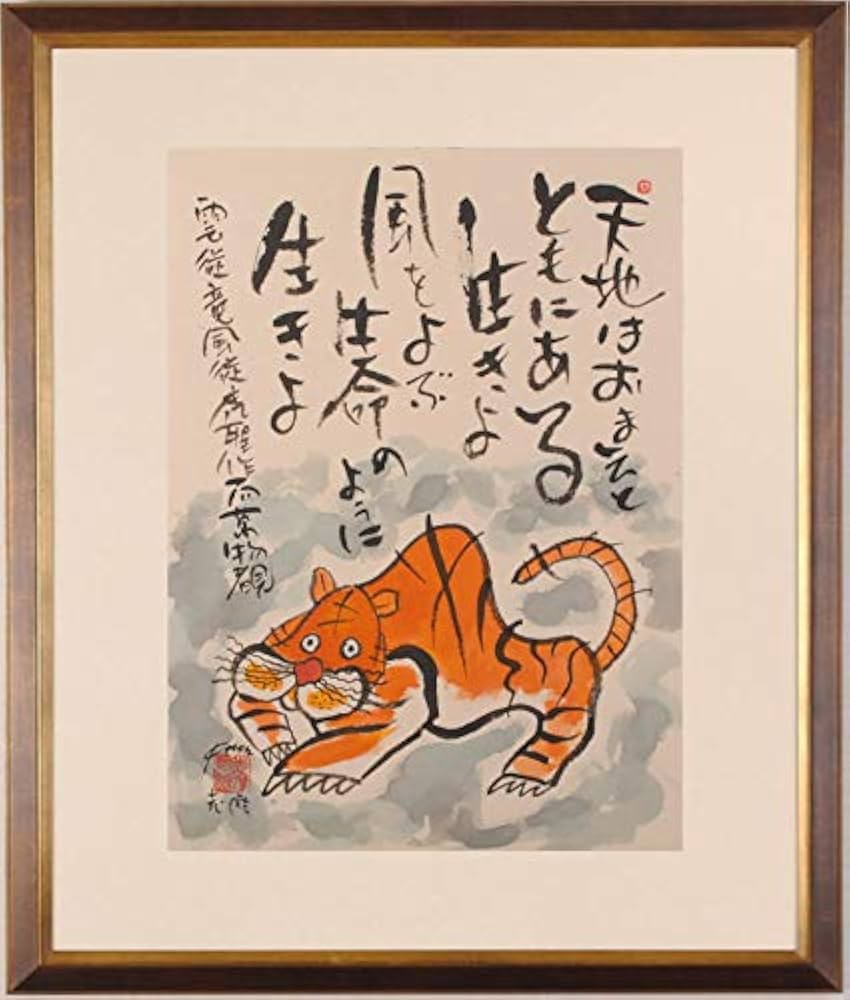 天地はおまえと
ともにある
生きよ
風をよぶ
生命のように
生きよ
雲従竜風従虎聖作而萬物覩